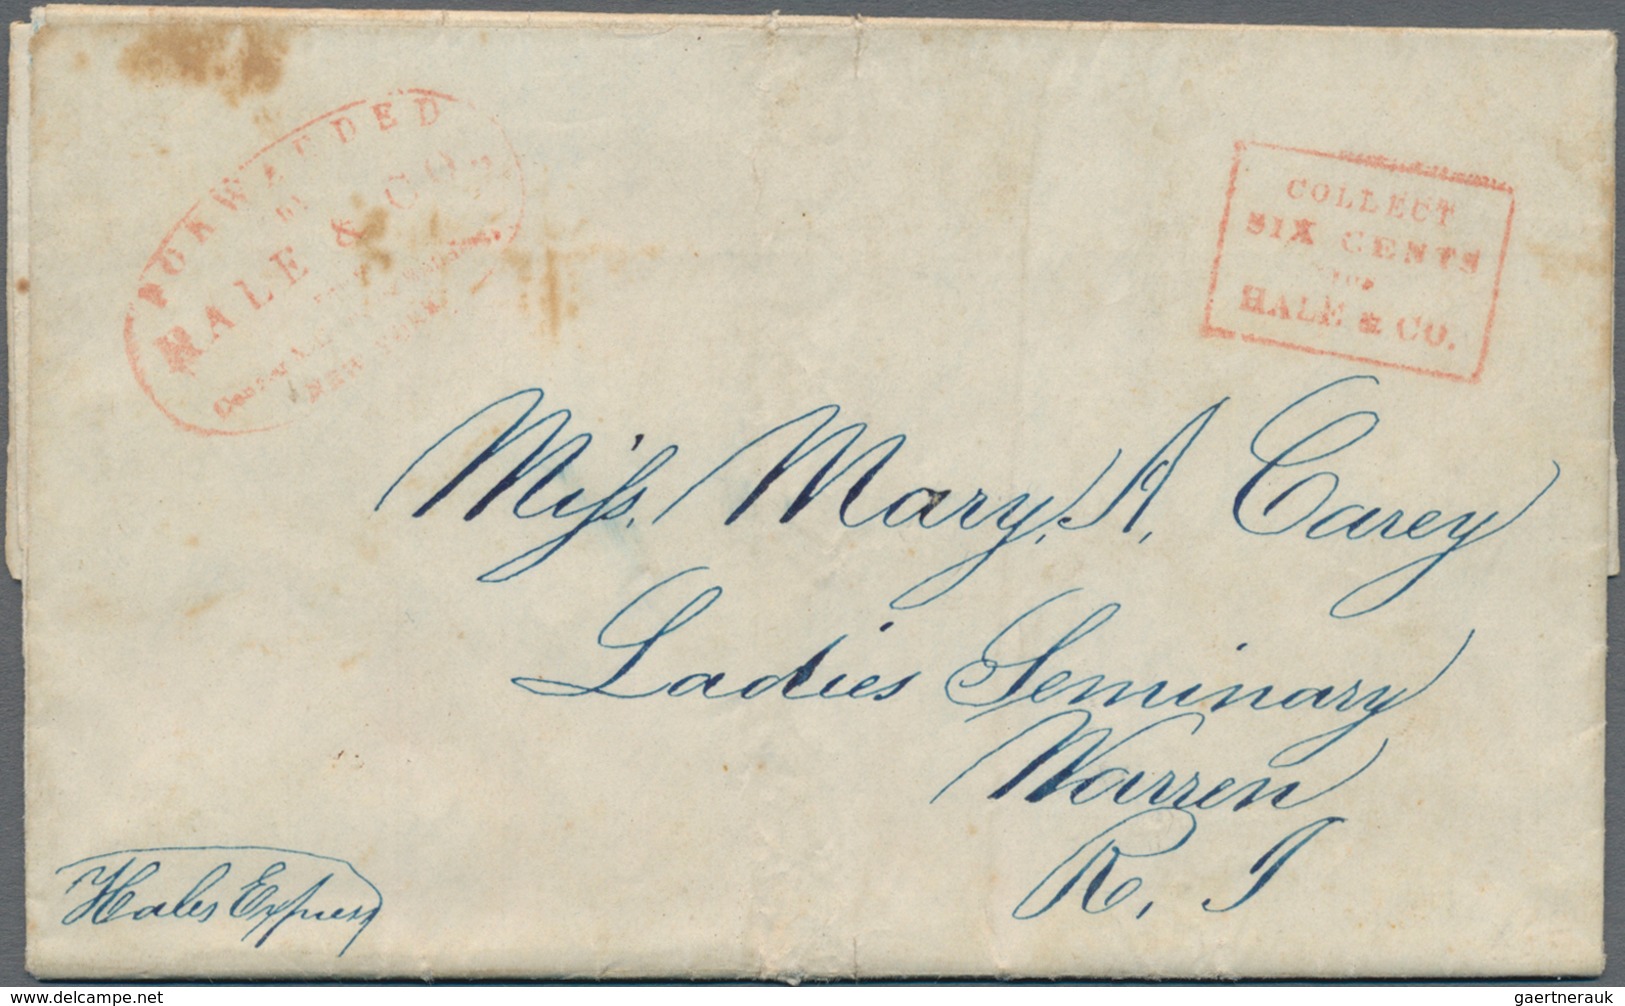 FORWARDED
by
HALE & CO.
NEW YORK.
COLLECT
SIX CENTS
FOR
HALE & CO.
Miss. Mary. A. Carey
Ladies Seminary
Warren
R. I
Hales Express
www.delcampe.net
gaertnerauk